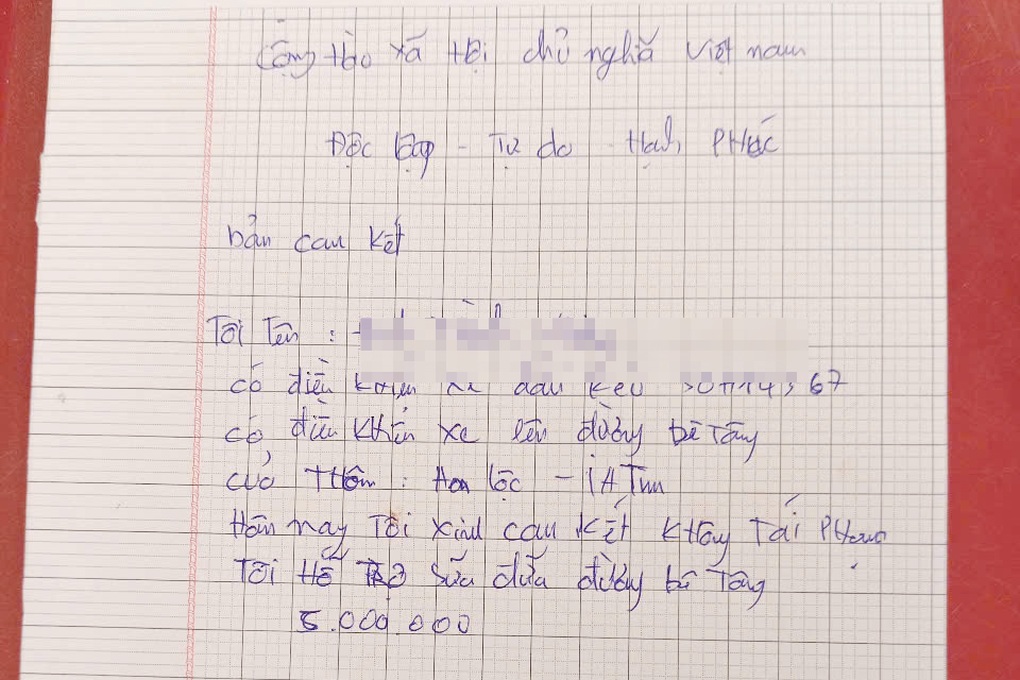 Cộng Hào xã Hội chủ nghĩã Việt nam
Độc lập - Tự do - Hạnh PHúc
bản cau kết
Tôi Tên :
có điều xe đầu kéo 67
có điều khển xe lên đường bê Tông
củả THôn : Hoa lộc - iA Tim
Hôn nay Tôi xinh cau kết KHông Tái PHạm
Tôi Hỗ Trợ sữa đữa đường bê Tông
5.000.000